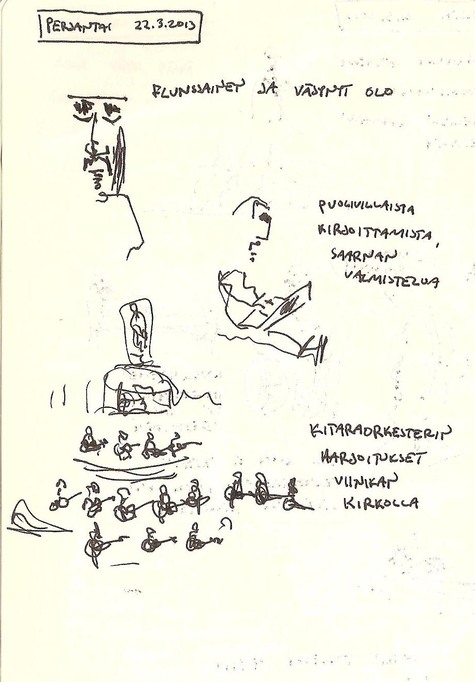 PERJANTAI 22.3.2013
FLUNSSAINEN JA VÄSYNYT OLO
PUOLIVILLAISTA
KIRJOITTAMISTA,
SAARNAN
VALMISTELUA
KITARAORKESTERIN
HARJOITUKSET
VIINIKAN
KIRKOLLA